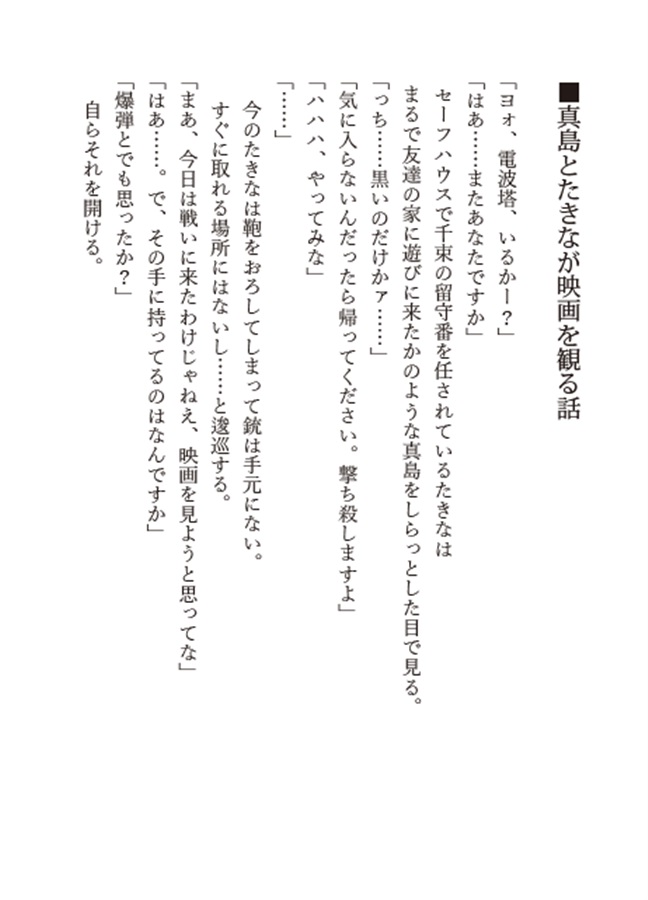 ■真島とたきなが映画を観る話
「ヨォ、電波塔、いるかー？」
「はあ……またあなたですか」
セーフハウスで千束の留守番を任されているたきなは
まるで友達の家に遊びに来たかのような真島をしらっとした目で見る。
「っち……黒いのだけかァ……」
「気に入らないんだったら帰ってください。撃ち殺しますよ」
「ハハハ、やってみな」
「……」
今のたきなは鞄をおろしてしまって銃は手元にない。
すぐに取れる場所にはないし……と逡巡する。
「まあ、今日は戦いに来たわけじゃねえ、映画を見ようと思ってな」
「はあ……。で、その手に持ってるのはなんですか」
「爆弾とでも思ったか？」
自らそれを開ける。